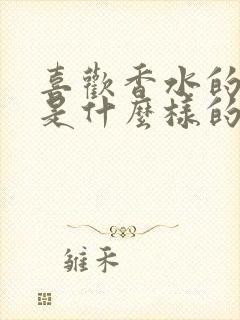 喜歡香水的
是什麼樣的
雏禾